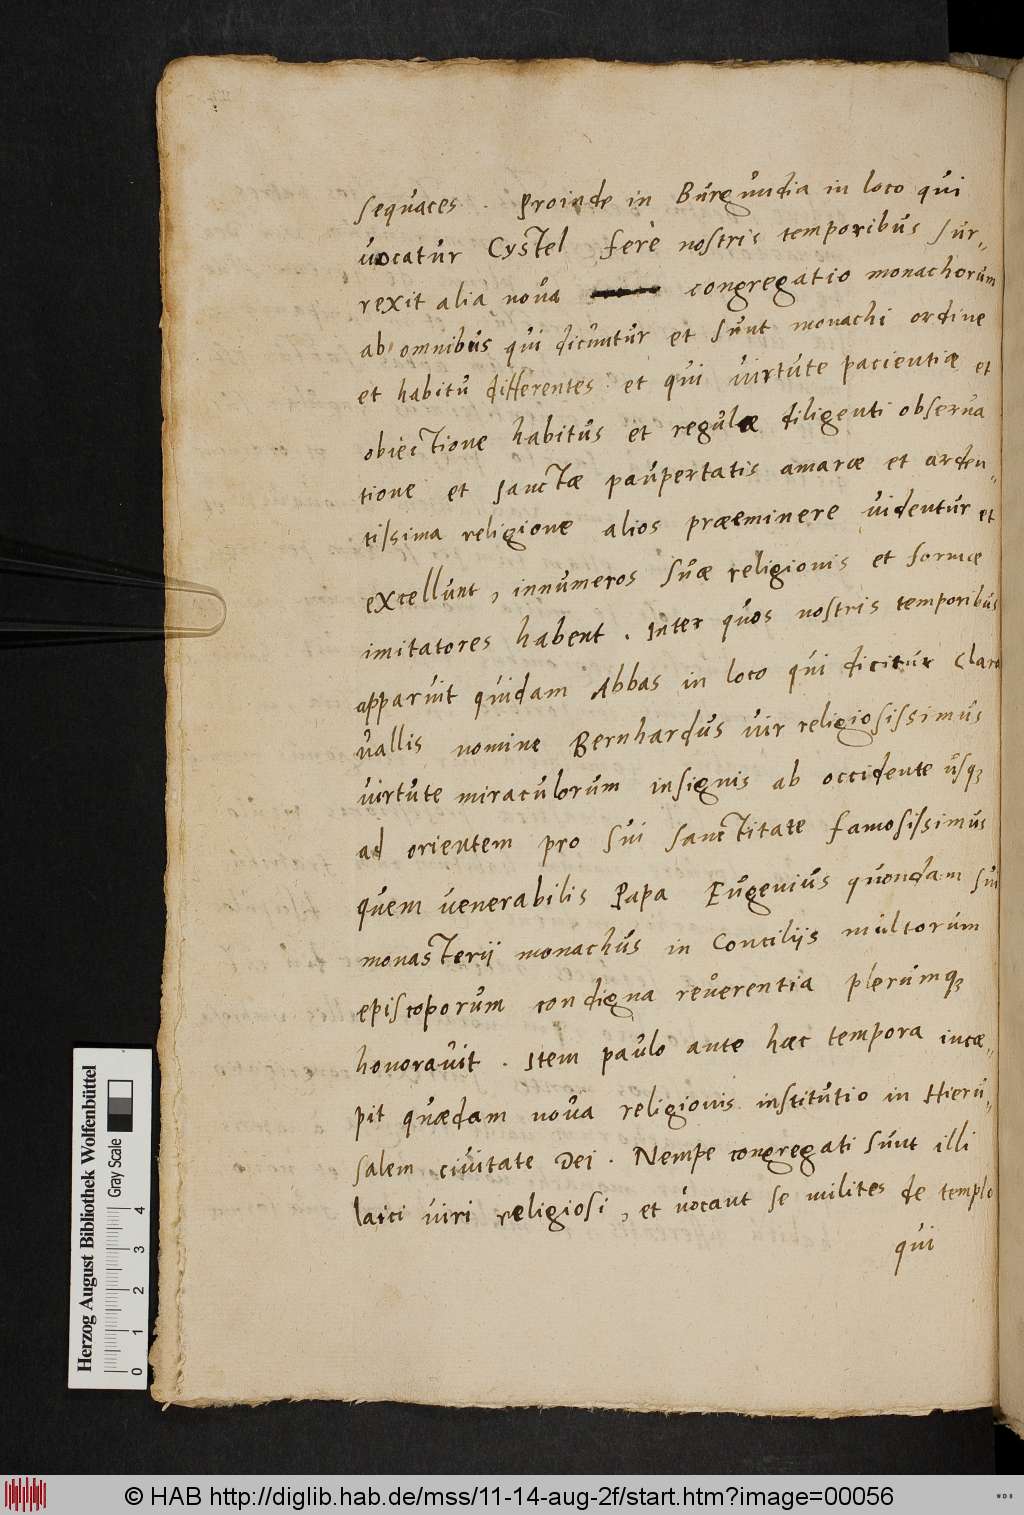 sequaces. Proinde in Burgundia in loco qui
vocatur Cystel fere nostris temporibus sur-
rexit alia nova congregatio monachorum
ab omnibus qui dicuntur et sunt monachi ordine
et habitu differentes et qui virtute pacientiæ et
obiectione habitus et regulæ diligenti observa
tione et sanctæ paupertatis amaræ et arden-
tissima religione alios præeminere videntur et
excellunt, innumeros suæ religionis et formæ
imitatores habent. Inter quos nostris temporibus
apparuit quidam Abbas in loco qui dicitur Clara
vallis nomine Bernhardus vir religiosissimus
virtute miraculorum insignis ab occidente usq3
ad orientem pro sui sanctitate famosissimus
quem venerabilis Papa Eugenius quondam sui
monasterij monachus in Concilijs multorum
episcoporum condigna reverentia plerumq3
honoravit. Item paulo ante hæc tempora incæ-
pit quædam nova religionis institutio in Hieru-
salem civitate Dei. Nempe congregati sunt illi
laici viri religiosi, et vocant se milites de templo
qui
Herzog August Bibliothek Wolfenbüttel
Gray Scale
0 1 2 3 4
© HAB http://diglib.hab.de/mss/11-14-aug-2f/start.htm?image=00056